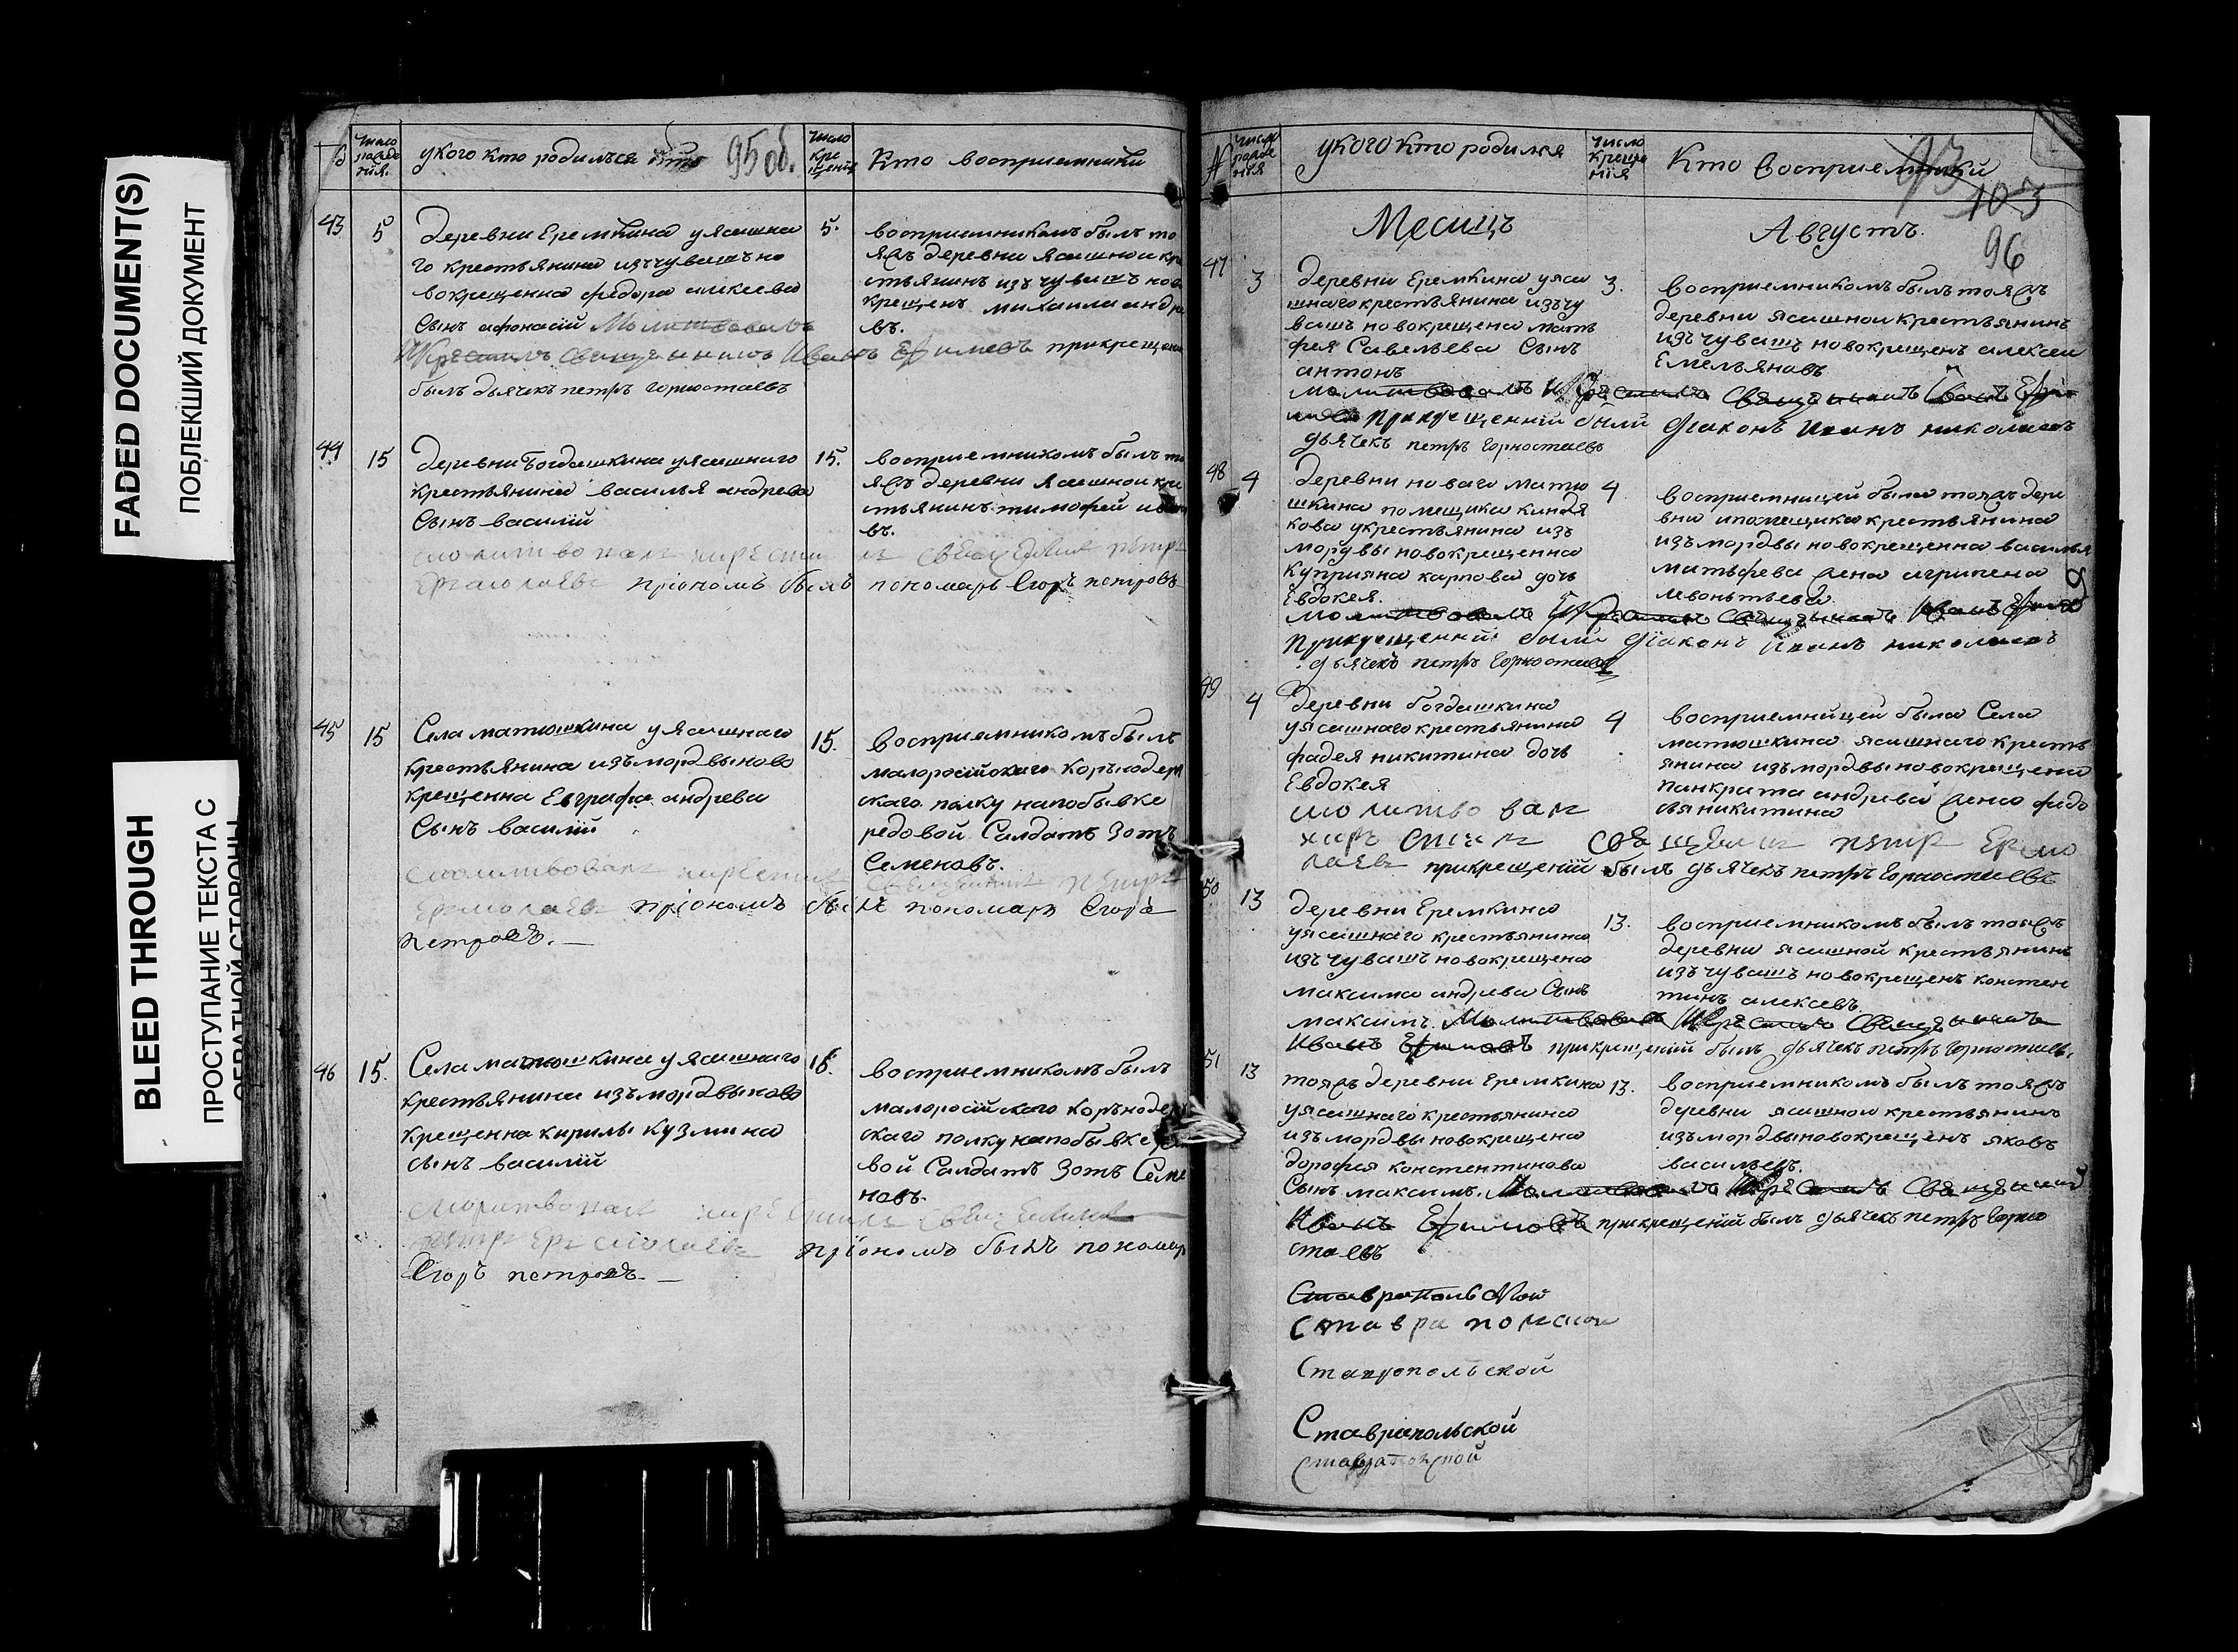 FADED DOCUMENT(S)
ПОБЛЕКШИЙ ДОКУМЕНТ
BLEED THROUGH
ПРОСТУПАНИЕ ТЕКСТА С
ОБРАТНОЙ СТОРОНЫ
число рожде нїя.
укого кто родился
95 об.
число кре щенїя
Кто восприемники
43
5
деревни Еремкина уясашна
го крестьянина изъчувашъ но
вокрещенна федора алексева
Сынъ афонасїй Молитвовалъ
Икрестилъ священникъ Иванъ Ефимовъ прикрещени
былъ дьячекъ петръ горностаевъ
5.
восприемникомъ былъ то
яжъ деревни ясашнои кре
стьянинъ изъ чувашъ ново
крещенъ михаила андре
въ.
44
15
деревни Богдашкина уясашнаго
крестьянина василья андрева
Сынъ василїй
молитвовалъ икрестилъ священникъ петръ
Ермолаевъ прїономъ былъ пономарь Егоръ петровъ
15.
восприемникомъ былъ то
яжъ деревни ясашнои кре
стьянинъ тимофей ива
въ.
45
15
Села матюшкина уясашнаго
крестьянина изъмордвыново
крещенна Евграфа андрева
Сынъ василїй
молитвовалъ икрестилъ священникъ петръ
Ермолаевъ прїономъ былъ пономарь Егоръ
петровъ.
15.
восприемникомъ былъ
малоросїйскаго
скаго полку напобывке
редовой Салдатъ Зотъ
Семеновъ.
46
15.
Села матюшкина уясашнаго
крестьянина изъмордвыново
крещенна кирилы кузмина
сынъ василїй
молитвовалъ икрестилъ священникъ
петръ Ермолаевъ прїономъ былъ пономарь
Егоръ петровъ.
15.
восприемникомъ былъ
малоросїйского
скаго полку напобывке
вой Салдатъ Зотъ Семе
новъ.
число рожде нїя
укого кто родился
число креще нїя
Кто восприемники
93
103
96
Месяцъ
Августъ.
47
3
деревни Еремкина уяса
шнаго крестьянина изъчу
вашъ новокрещена мать
фея Савельева Сынъ
антонъ
молитвовалъ Икрестилъ Священникъ Иванъ Ефи
мовъ Прикрещенїй были дїаконъ Иванъ николаевъ
дьячекъ петръ Горностаевъ
3.
восприемникомъ былъ тояжъ
деревни ясашнои крестьянинъ
изъ чувашъ новокрещенъ алексеи
Емельяновъ
48
4
деревни новаго матю
шкина помещика киндя
кова укрестьянина изъ
мордвы новокрещенна
Куприяна карпова дочь
Евдокея.
молитвовалъ Икрестилъ Священникъ Иванъ Ефимов
Прикрещенїй были дїаконъ Иванъ николаевъ
дьячекъ петръ Горностаевъ
4
восприемницей была тояжъ дере
вни ипомещика крестьянина
изъ мордвы новокрещенна василья
матьфева жена агрипена
левонтьева
49
4
деревни богдашкина
уясашнаго крестьянина
фадея никитина дочь
Евдокея
молитвовал
икрестилъ священникъ петръ Ермо
лаевъ прикрещенїй былъ дьячекъ петръ Горностаевъ
4
восприемницей была Села
матюшкина ясашнаго кресть
янина изъмордвы новокрещена
панкрата андрева жена федо
сья никитина
50
13
деревни Еремкина
уясашнаго крестьянина
изъ чувашъ новокрещена
максима андрева Сынъ
максимъ. Молитвовалъ Икрестилъ Священникъ
Иванъ Ефимовъ прикрещенїй былъ дьячекъ петръ Горностаевъ
13.
восприемникомъ былъ тояжъ
деревни ясашной крестьянинъ
изъ чувашъ новокрещенъ констен
тинъ алексевъ
51
13
тояжъ деревни Еремкина
уясашнаго крестьянина
изъ мордвы новокрещена
дорофея констентинова
Сынъ максимъ. Молитвовалъ Икрестилъ Священник
Иванъ Ефимовъ прикрещенїй былъ дьячекъ петръ Горно
стаевъ
13.
восприемникомъ былъ тояжъ
деревни ясашнои крестьянинъ
изъ мордвы новокрещенъ яковъ
васильевъ.
Ставропольской
Ставропольской
Ставропольской
Ставропольской